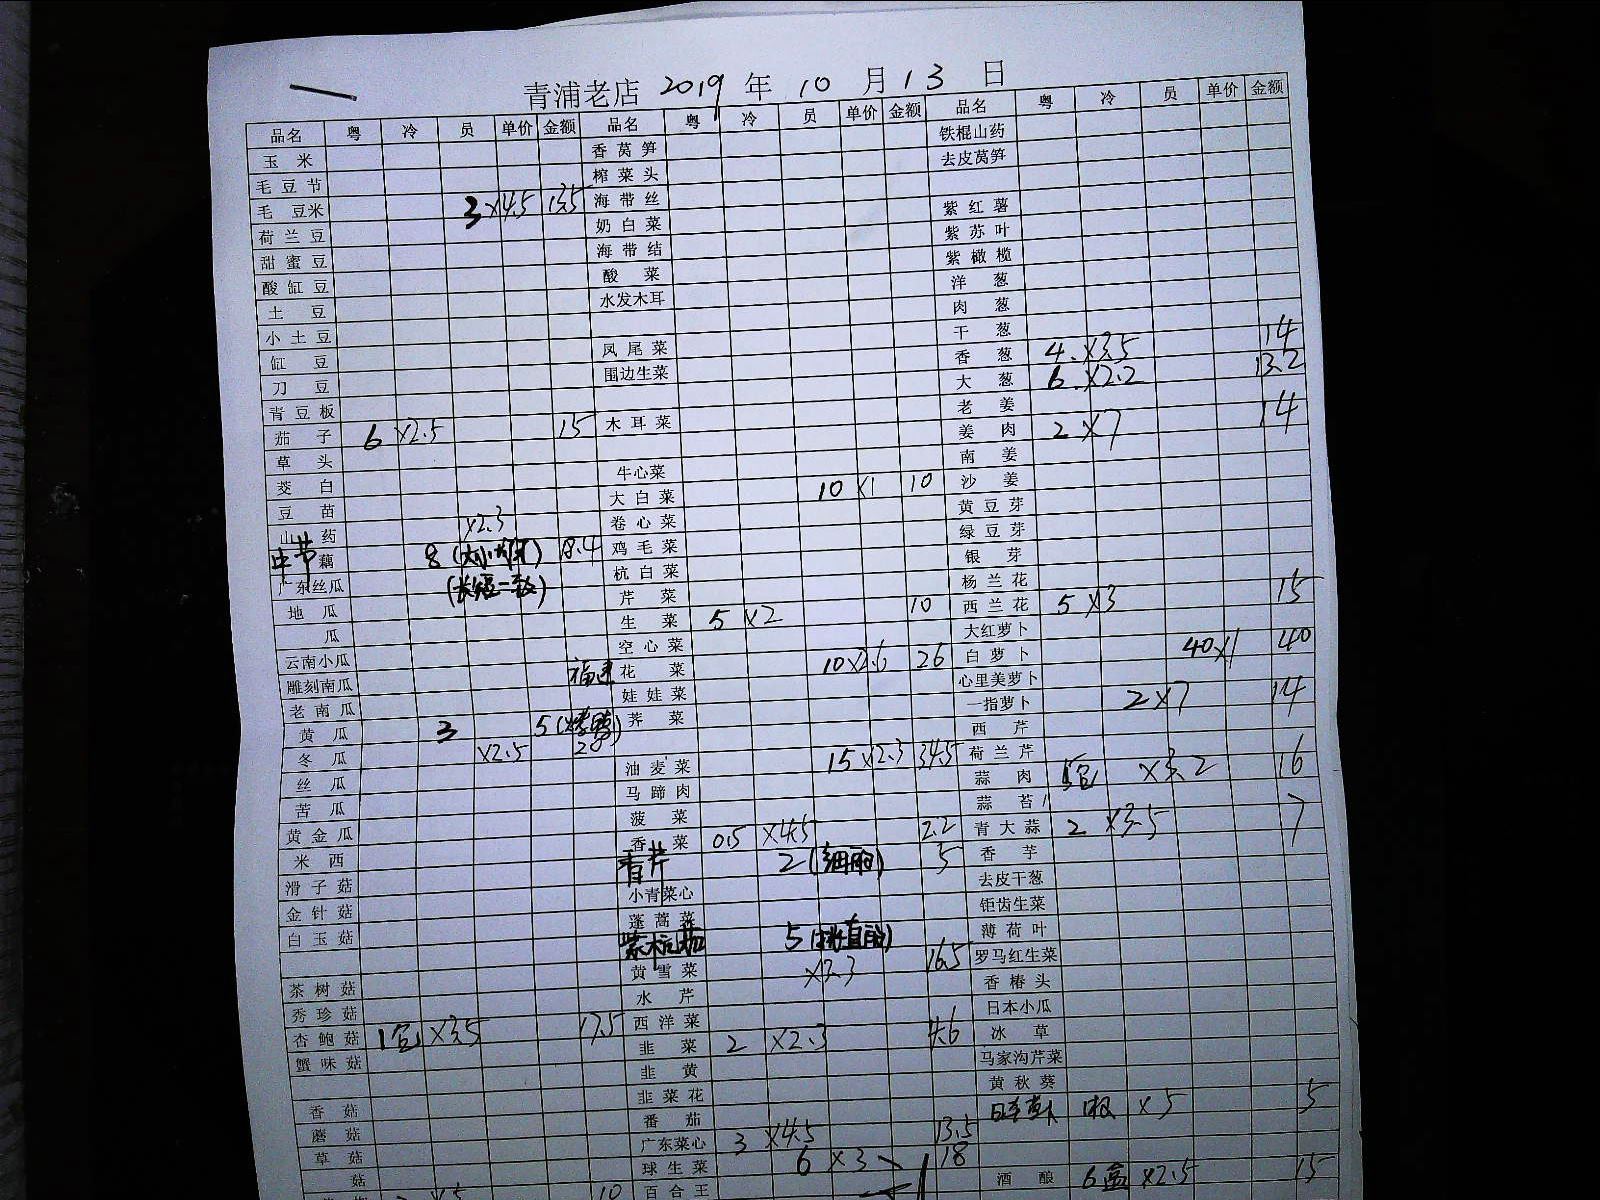 青浦老店 2019 年 10 月 13 日
品名 粤 冷 员 单价 金额 品名 粤 冷 员 单价 金额 品名 粤 冷 员 单价 金额
玉米 香莴笋 铁棍山药
毛豆节 榨菜头 去皮莴笋
毛豆米 3 x4.5 13.5 海带丝
荷兰豆 奶白菜 紫红薯
甜蜜豆 海带结 紫苏叶
酸缸豆 酸菜 紫橄榄
土豆 水发木耳 洋葱
小土豆 肉葱
缸豆 凤尾菜 干葱
刀豆 围边生菜 香葱 4 x3.5 14
青豆板 大葱 6 x2.2 13.2
茄子 6 x2.5 15 木耳菜 老姜
草头 姜肉 2 x7 14
茭白 牛心菜 南姜
豆苗 大白菜 10 x1 10 沙姜
山药 x2.3 卷心菜 黄豆芽
中节 藕 8 18.4 鸡毛菜 绿豆芽
广东丝瓜 (长短一致) 杭白菜 银芽
地瓜 芹菜 杨兰花
瓜 生菜 5 x2 10 西兰花 5 x3 15
云南小瓜 空心菜 大红萝卜
雕刻南瓜 福建 花菜 10 x2.6 26 白萝卜 40 x1 40
老南瓜 娃娃菜 心里美萝卜
黄瓜 3 5 (烤鸭) 荠菜 一指萝卜 2 x7 14
冬瓜 x2.5 20 西芹
丝瓜 油麦菜 15 x2.3 34.5 荷兰芹
苦瓜 马蹄肉 蒜肉 5包 x3.2 16
黄金瓜 菠菜 蒜苔
米西 香菜 0.5 x4.5 2.2 青大蒜 2 x3.5 7
滑子菇 青芹 2 5 香芋
金针菇 小青菜心 去皮干葱
白玉菇 蓬蒿菜 钜齿生菜
紫杭茄 5 薄荷叶
茶树菇 黄雪菜 x3.3 16.5 罗马红生菜
秀珍菇 水芹 香椿头
杏鲍菇 1包 x3.5 17.5 西洋菜 日本小瓜
蟹味菇 韭菜 2 x2.3 4.6 冰草
韭黄 马家沟芹菜
香菇 韭菜花 黄秋葵
蘑菇 番茄 x5 5
草菇 广东菜心 3 x4.5 13.5
菇 球生菜 6 x3 18 酒酿 6盒 x2.5 15
10 百合王